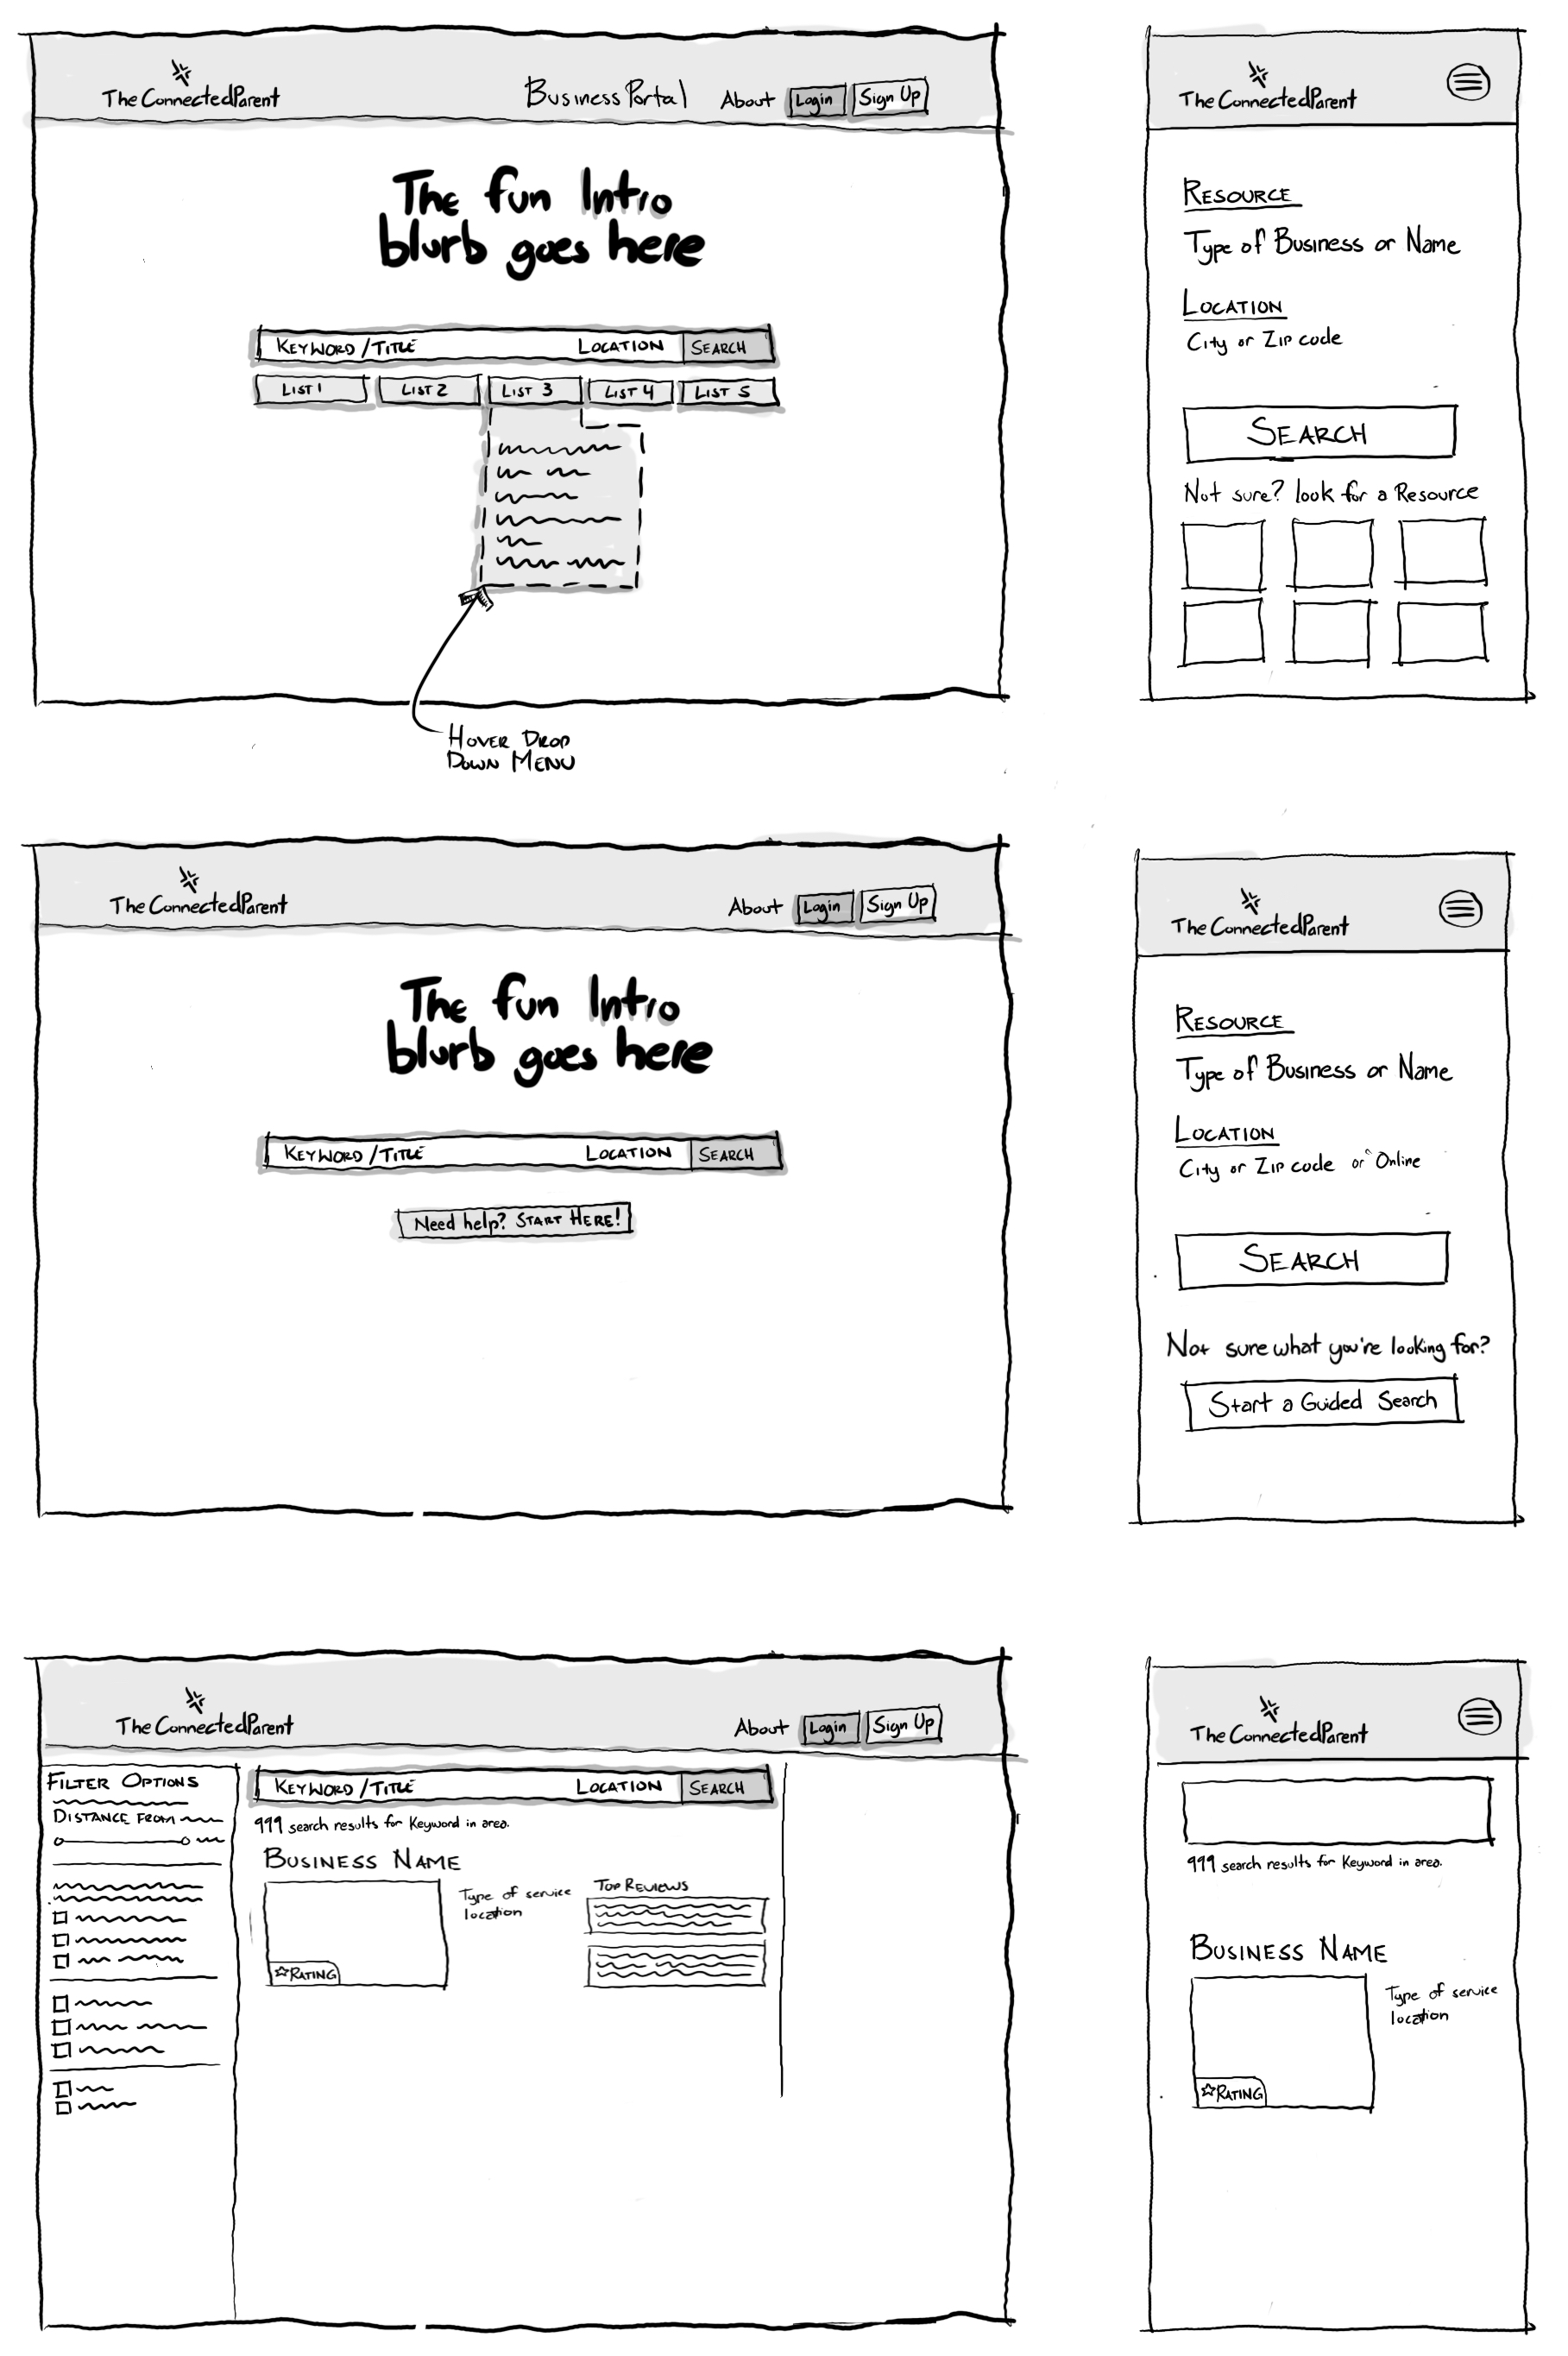 TheConnectedParent
Business Portal About Login Sign Up
The fun Intro
blurb goes here
KEYWORD/TITLE LOCATION SEARCH
LIST 1 LIST 2 LIST 3 LIST 4 LIST 5
HOVER DROP
DOWN MENU
TheConnectedParent
RESOURCE
Type of Business or Name
LOCATION
City or Zip code
SEARCH
Not sure? look for a Resource
TheConnectedParent
About Login Sign Up
The fun Intro
blurb goes here
KEYWORD/TITLE LOCATION SEARCH
Need help? START HERE!
TheConnectedParent
RESOURCE
Type of Business or Name
LOCATION
City or Zip code or Online
SEARCH
Not sure what you're looking for?
Start a Guided Search
TheConnectedParent
About Login Sign Up
FILTER OPTIONS
DISTANCE FROM
KEYWORD/TITLE LOCATION SEARCH
999 search results for Keyword in area.
BUSINESS NAME
Type of service
location
TOP REVIEWS
☆RATING
TheConnectedParent
999 search results for Keyword in area.
BUSINESS NAME
Type of service
location
☆RATING